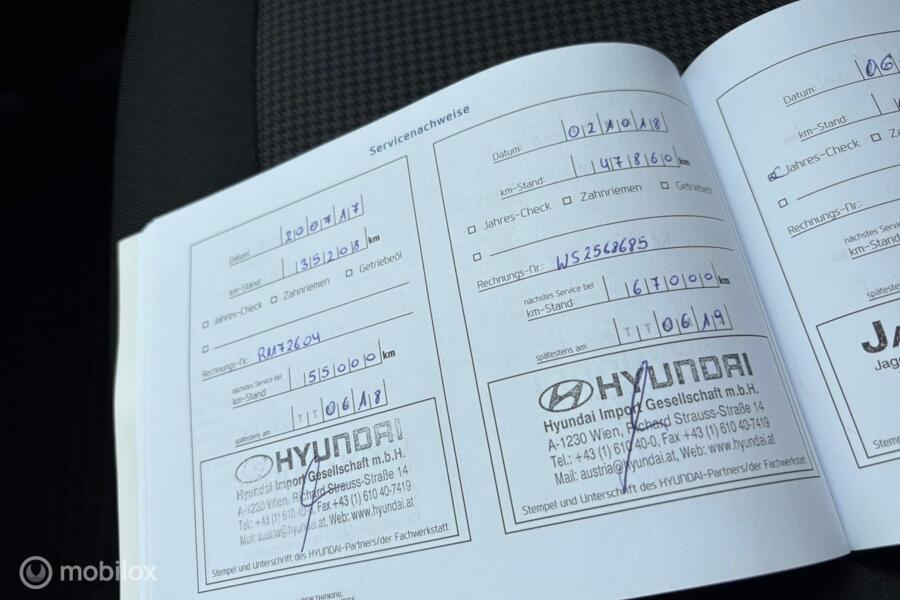 Servicenachweise
Datum: 200717
km-Stand: 35208 km
Jahres-Check Zahnriemen Getriebeöl
Rechnungs-Nr.: RM72604
nächstes Service bei
km-Stand: 55000 km
spätestens am: TT0618
HYUNDAI
Hyundai Import Gesellschaft m.b.H.
A-1230 Wien, Richard Strauss-Straße 14
Tel.: +43 (1) 610 40-0, Fax +43 (1) 610 40-7419
Mail: austria@hyundai.at, Web: www.hyundai.at
Stempel und Unterschrift des HYUNDAI-Partners/der Fachwerkstatt
Datum: 021018
km-Stand: 47860 km
Jahres-Check Zahnriemen Getriebeöl
Rechnungs-Nr.: WS2568685
nächstes Service bei
km-Stand: 67000 km
spätestens am: TT0619
HYUNDAI
Hyundai Import Gesellschaft m.b.H.
A-1230 Wien, Richard Strauss-Straße 14
Tel.: +43 (1) 610 40-0, Fax +43 (1) 610 40-7419
Mail: austria@hyundai.at, Web: www.hyundai.at
Stempel und Unterschrift des HYUNDAI-Partners/der Fachwerkstatt
Datum: 06
km-Stand:
Jahres-Check Za
Rechnungs-Nr.:
nächstes Service
km-Stand
spätestens
JA
Jagu
Stempel
mobilox